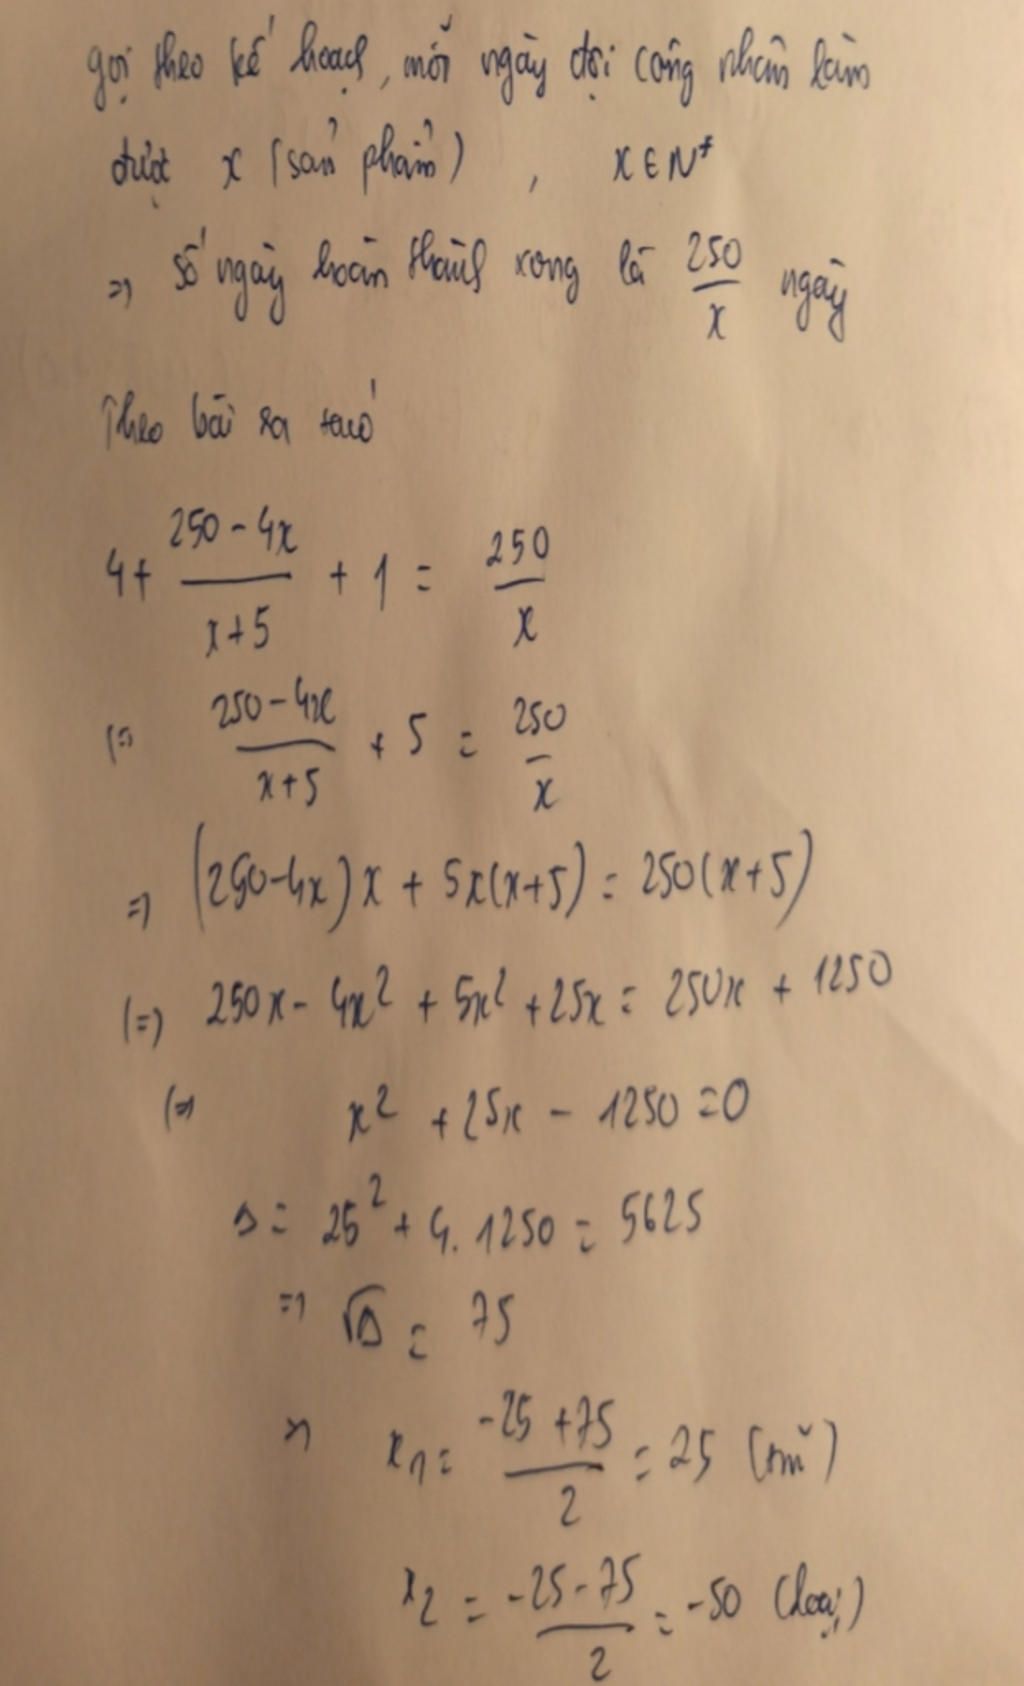 gọi theo kế hoạch, mỗi ngày đội công nhân làm
được x (sản phẩm) , x ∈ N*
=> số ngày hoàn thành xong là 250/x ngày
Theo bài ra ta có
4 + (250 - 4x)/(x+5) + 1 = 250/x
(=) (250 - 4x)/(x+5) + 5 = 250/x
=> (250-4x)x + 5x(x+5) = 250(x+5)
(=) 250x - 4x² + 5x² + 25x = 250x + 1250
(=) x² + 25x - 1250 = 0
Δ = 25² + 4.1250 = 5625
=> √Δ = 75
=> x₁ = (-25 + 75)/2 = 25 (tm)
x₂ = (-25 - 75)/2 = -50 (loại)